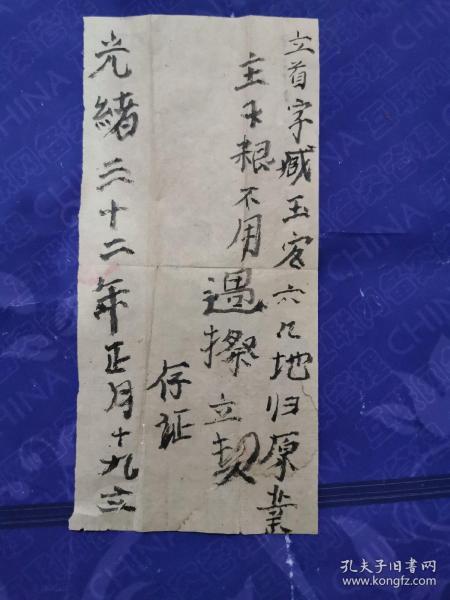 立首字臧玉客六尺地归原業
主不耕不用
過撥立契
存証
光緒三十二年正月十九立
孔夫子旧书网
www.kongfz.com